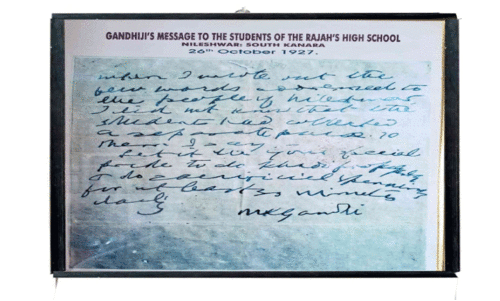 GANDHIJI'S MESSAGE TO THE STUDENTS OF THE RAJAH'S HIGH SCHOOL
NILESHWAR: SOUTH KANARA
26th October 1927.
when I wrote out the
few words addressed to
the people of Nileshwar
I did not know that the
students had collected
a separate purse. To
them I say
Let it be your special
to do
to do sacrificial spinning
for at least 30 minutes
daily
MKGandhi